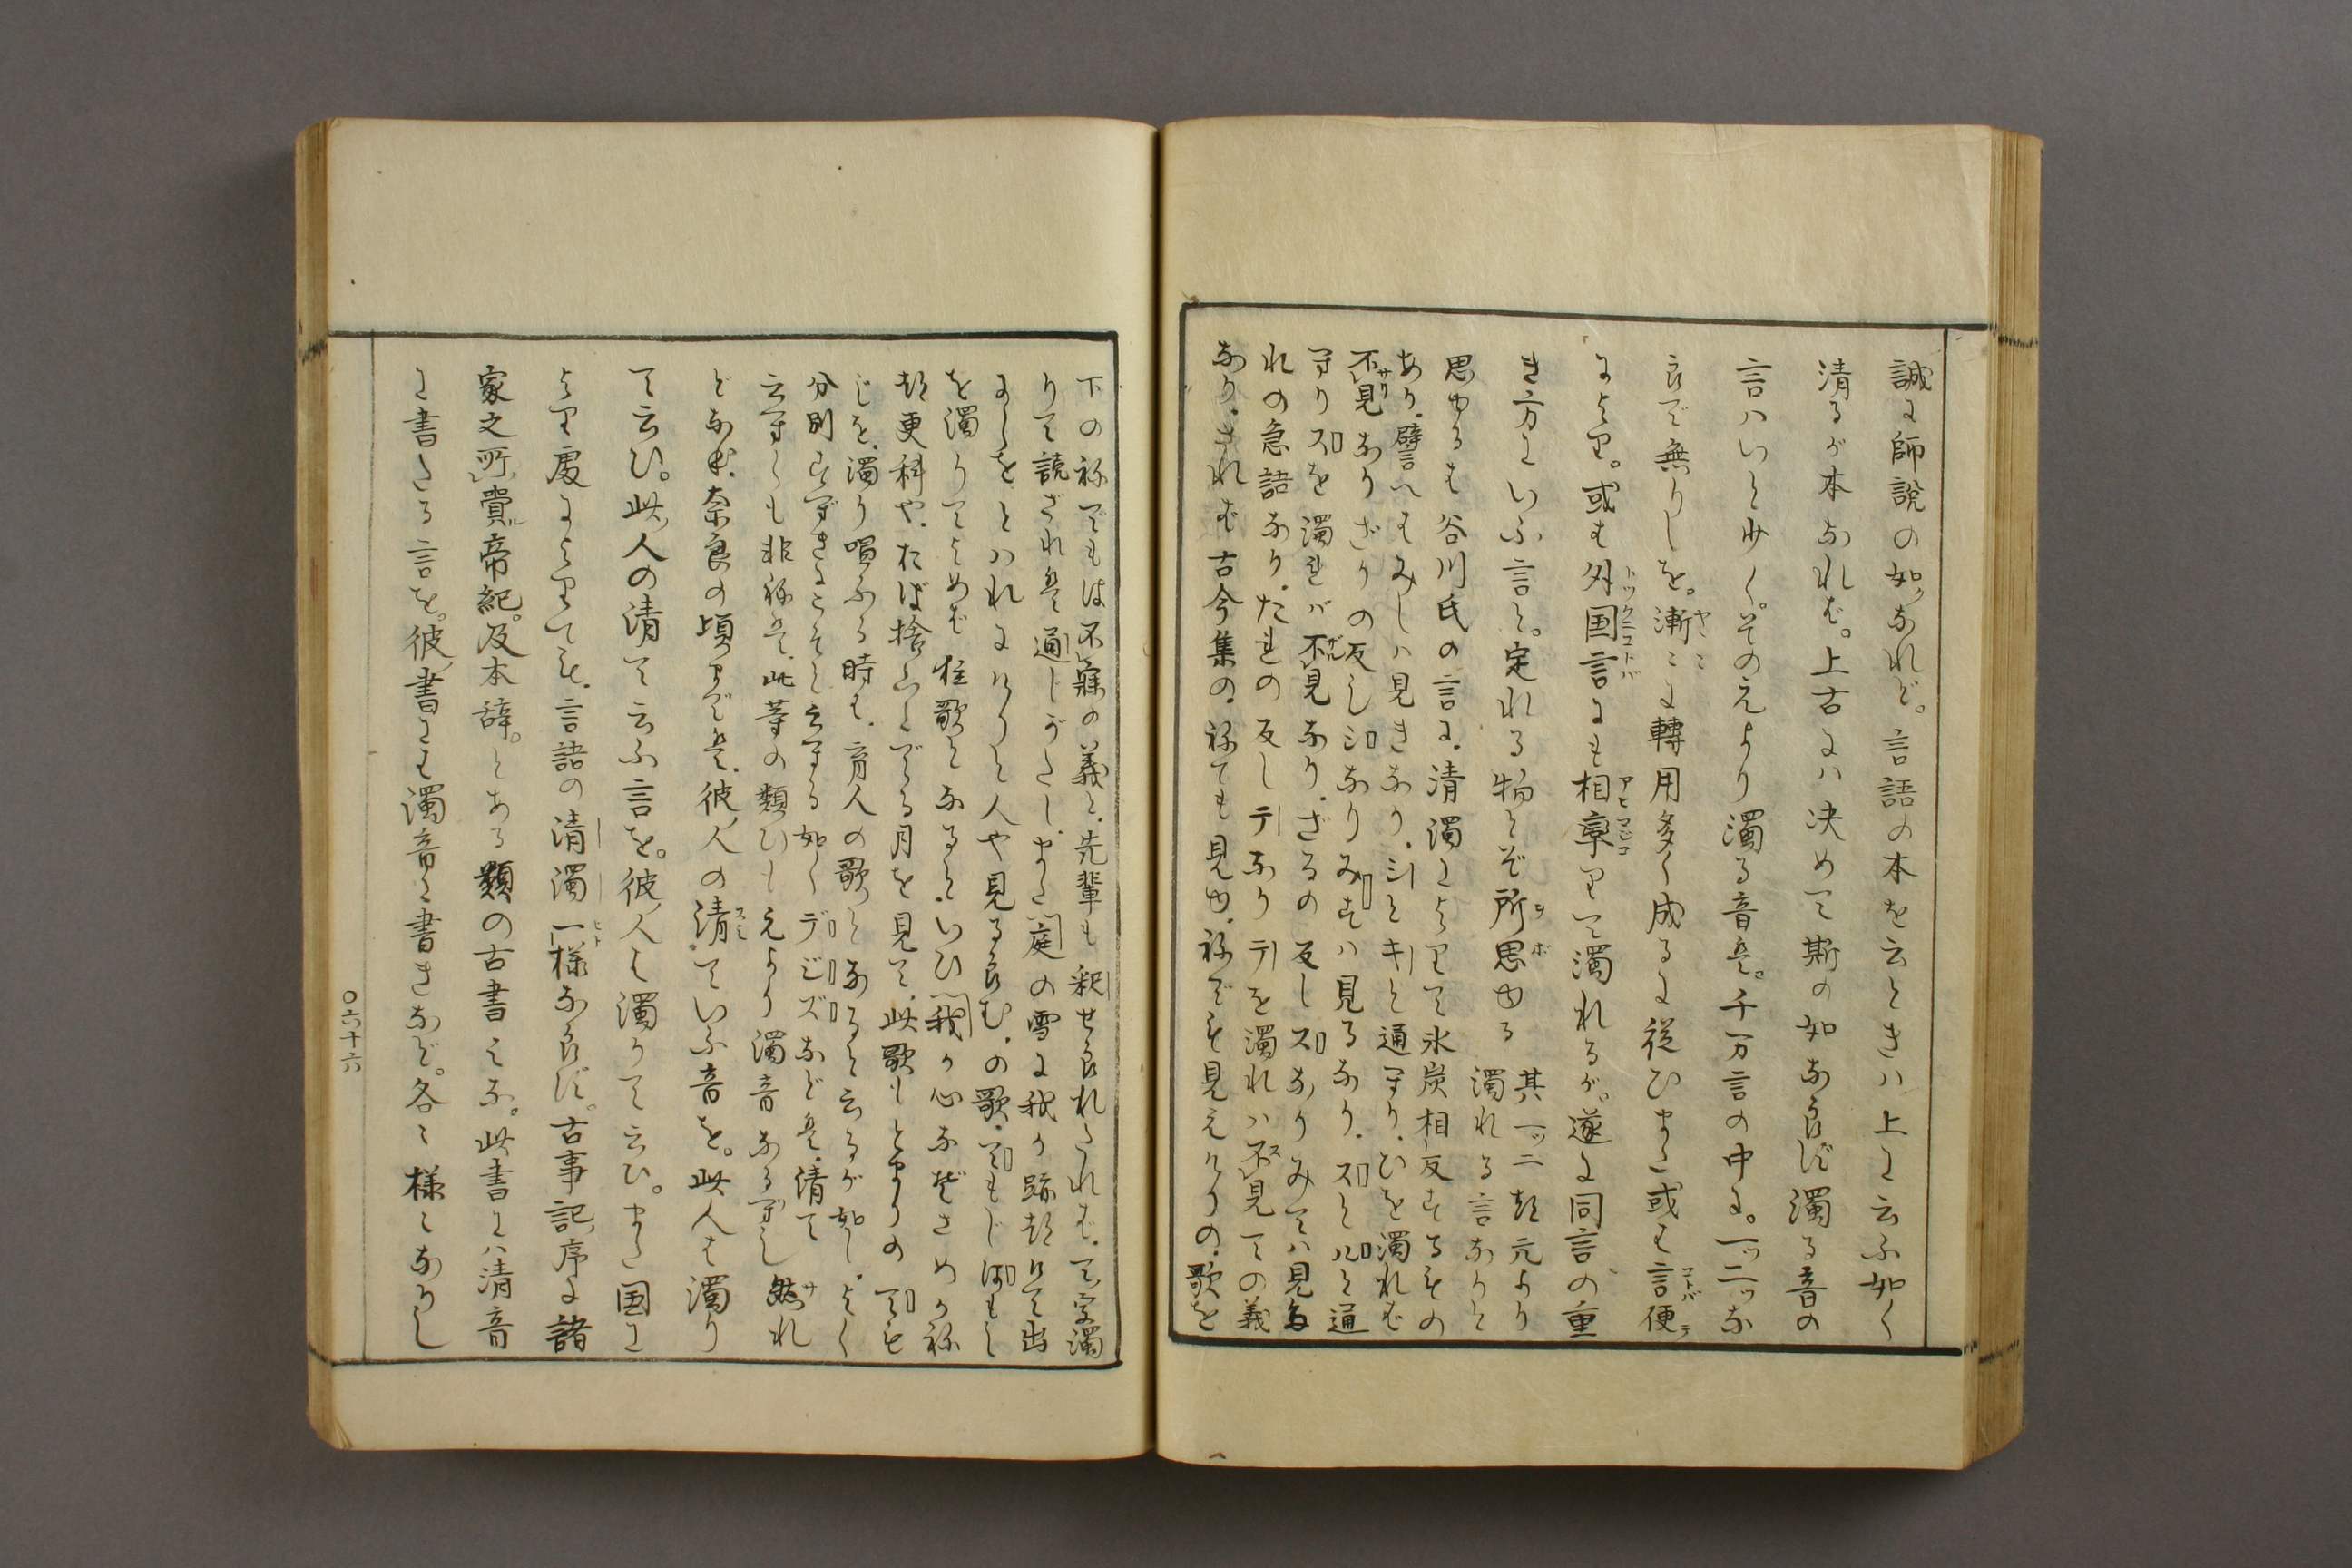 誠に師説の如くなれど。言語の本を云ときハ上に云ふ如く
清るが本なれば。上古にハ决めて斯の如ならば濁る音の
言ハいと少く。そのえより濁る音は。千万言の中に。一ッ二ッな
らで無りしを。漸ヤヽヽに轉用多く成るに從ひまた或は言便コトバテ
により。或も外国言トツクニコトバにも相率アヒマジコりて濁れるが。遂に同言の重
き方にいふ言と。定れる物とぞ所思オボゆる
其一ッ二ッ元より
濁れる言なりと
思ゆるも谷川氏の言に。清濁によりて氷炭相反するもの
あり。譬へはみしハ見きなり。シとキと通へり。ひを濁れば
不見サリなりざりの反しジなりみずハ見るなり。スとルと通
へりズを濁れバ不見ザルなり。ざるの反しズなりみてハ見た
れの急語なり。たれの反しテなりテを濁れハ不見ての義
なり。されば古今集の。ねても見ゆ。ねでも見えけりの。歌を
下のねでもは不寐の義と。先輩も釈せられたれば。て字濁
りて読ざれは通じがたし。また庭の雪に我が跡つけて出
にしをとハれにけりと人や見るらむ。の歌。てもじ
を濁りてよめば狂歌となると。いひ我が心なぐさめかね
つ更科や。おば捨山にてる月を見て。此歌もとまりのても
じを。濁り唱ふる時も。育人の歌となると云るが如し。よく
分別すべきことと云へる如くデジズなどは。清て
云へくも非ねは。此等の類ひもえより濁音なるべし然サれ
どなほ。奈良の頃までは。彼人の清スミていふ音を。此人は濁り
て云ひ。此人の清て云ふ言を。彼人は濁りて云ひ。また国に
より處によりても。言語の清濁一ヒト様ならず。古事記序に諸
家之所賷帝紀。及本辞。とある類の古書にも。此書にハ清音
に書たる言を。彼書にも濁音に書きなど。各々様々なりし
〇六十六